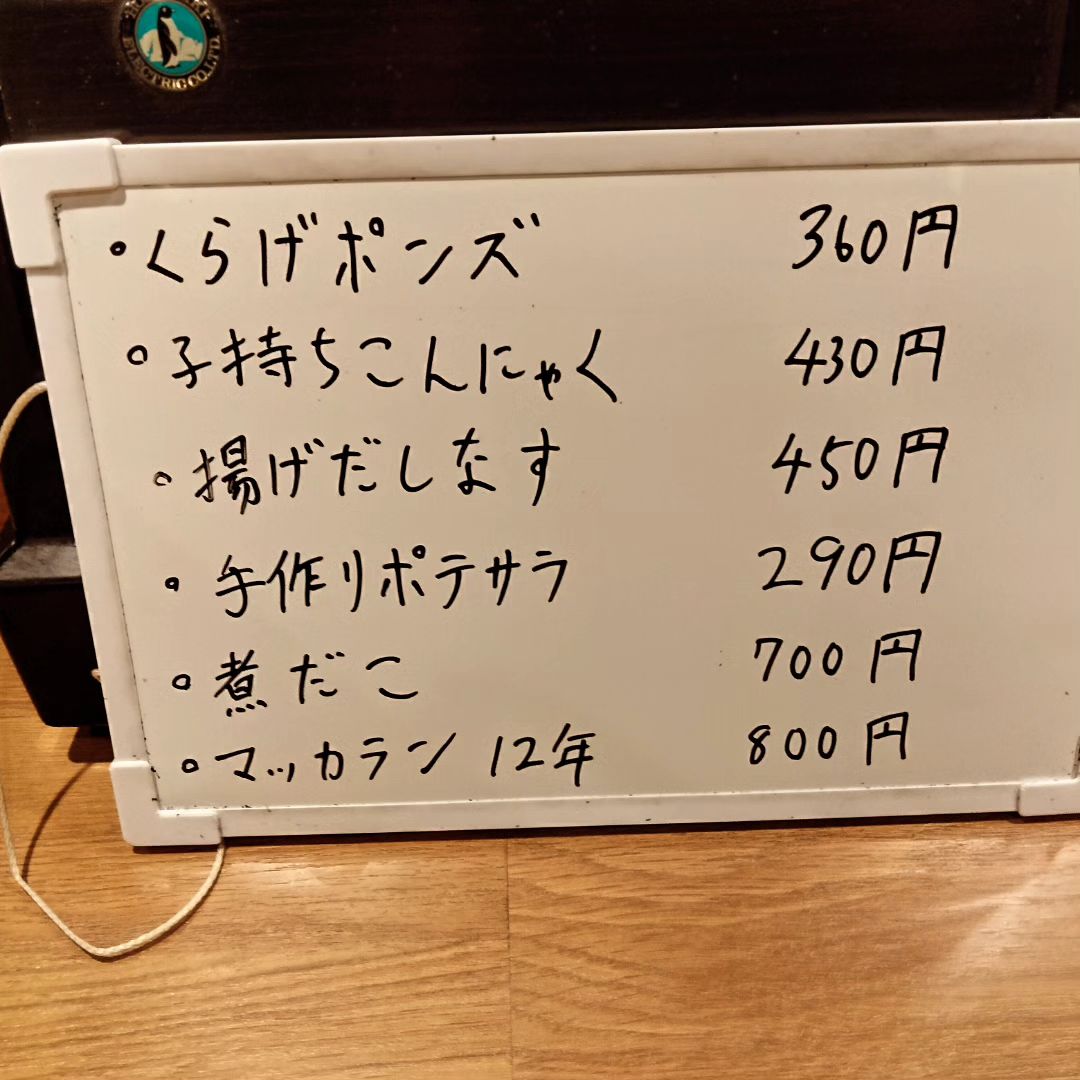 ELECTRIC CO. LTD.
・くらげポンズ 360円
・子持ちこんにゃく 430円
・揚げだしなす 450円
・手作りポテサラ 290円
・煮だこ 700円
・マッカラン 12年 800円